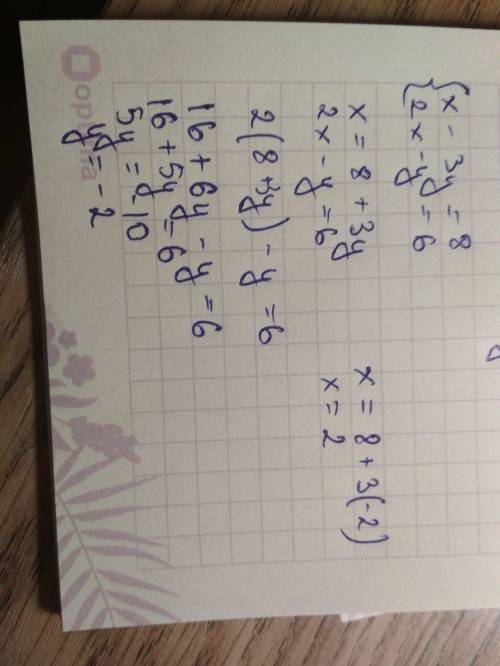 {x - 3y = 8
{2x - y = 6
x = 8 + 3y
2x - y = 6
2(8+3y) - y = 6
16 + 6y - y = 6
16 + 5y = 6
5y = -10
y = -2
x = 8 + 3(-2)
x = 2